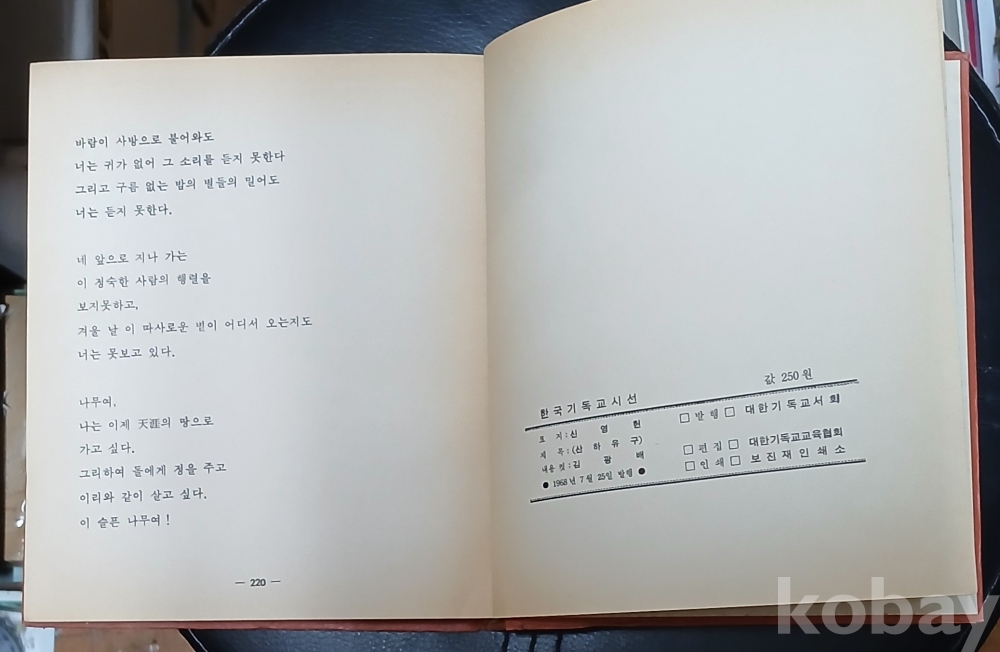 바람이 사방으로 불어와도
너는 귀가 없어 그 소리를 듣지 못한다
그리고 구름 없는 밤의 별들의 밀어도
너는 듣지 못한다.
네 앞으로 지나 가는
이 정숙한 사람의 행렬을
보지못하고,
겨울 날 이 따사로운 볕이 어디서 오는지도
너는 못보고 있다.
나무여,
나는 이제 天涯의 땅으로
가고 싶다.
그리하여 돌에게 정을 주고
이리와 같이 살고 싶다.
이 슬픈 나무여!
— 220 —
값 250원
한국기독교시선
표 지:신 영 헌
제 목:(산 하 유 구)
내용컷:김 광 배
● 1968년 7월 25일 발행 ●
□ 발 행 □ 대한기독교서회
□ 편 집 □ 대한기독교교육협회
□ 인 쇄 □ 보진재인쇄소
kobay